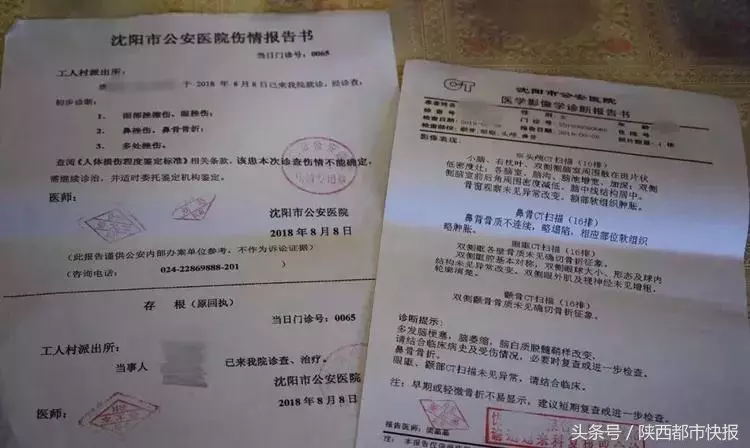 沈阳市公安医院伤情报告书
当日门诊号：0065
工人村派出所：
于 2018 年 8 月 8 日已来我院就诊，经诊查：
初步诊断：
1、 面部挫擦伤，眼挫伤；
2、 鼻挫伤，鼻骨骨折；
3、 多处挫伤。
查阅《人体损伤程度鉴定标准》相关条款，该患本次诊查伤情不能确定，
需继续诊治，并适时委托鉴定机构鉴定。
医师：
沈阳市公安医院
2018 年 8 月 8 日
（此报告谨供公安内部办案单位参考，不作为诉讼证据）
（咨询电话： 024-22869888-201 ）
存 根（原回执）
当日门诊号：0065
工人村派出所：
当事人 已来我院诊查、治疗。
沈阳市公安医院
医师：
2018 年 8 月 8 日
CT
沈阳市公安医院
医学影像学诊断报告书
患者姓名
性 别 女
检查部位
影像表现：
头颅CT扫描（16排）
小脑、右枕叶、双侧侧脑室周围散在斑片状
低密度灶；各脑室、脑沟、脑池增宽、加深；双侧
侧脑室前后角周围密度减低。脑中线结构居中。
骨窗观察未见异常改变。额部软组织肿胀。
鼻骨CT扫描（16排）
鼻骨骨质不连续，略塌陷，相应部位软组织
略肿胀。
眼眶CT扫描（16排）
双侧眶各壁骨质未见确切骨折征象。
双侧眶腔基本对称，双侧眼球大小、形态及球内
结构未见异常改变。双侧眼外肌及视神经未见增粗，
轮廓清楚。
颧骨CT扫描（16排）
双侧颧骨骨质未见确切骨折征象。
诊断提示：
多发脑梗塞，脑萎缩，脑白质脱髓鞘样改变。
请结合临床病史及受伤情况，必要时复查或进一步检查。
鼻骨骨折。
眼眶、颧部CT扫描未见异常，请结合临床。
注：早期或轻微骨折不易显示，建议短期复查或进一步检查。
报告医师：
头条号／陕西都市快报